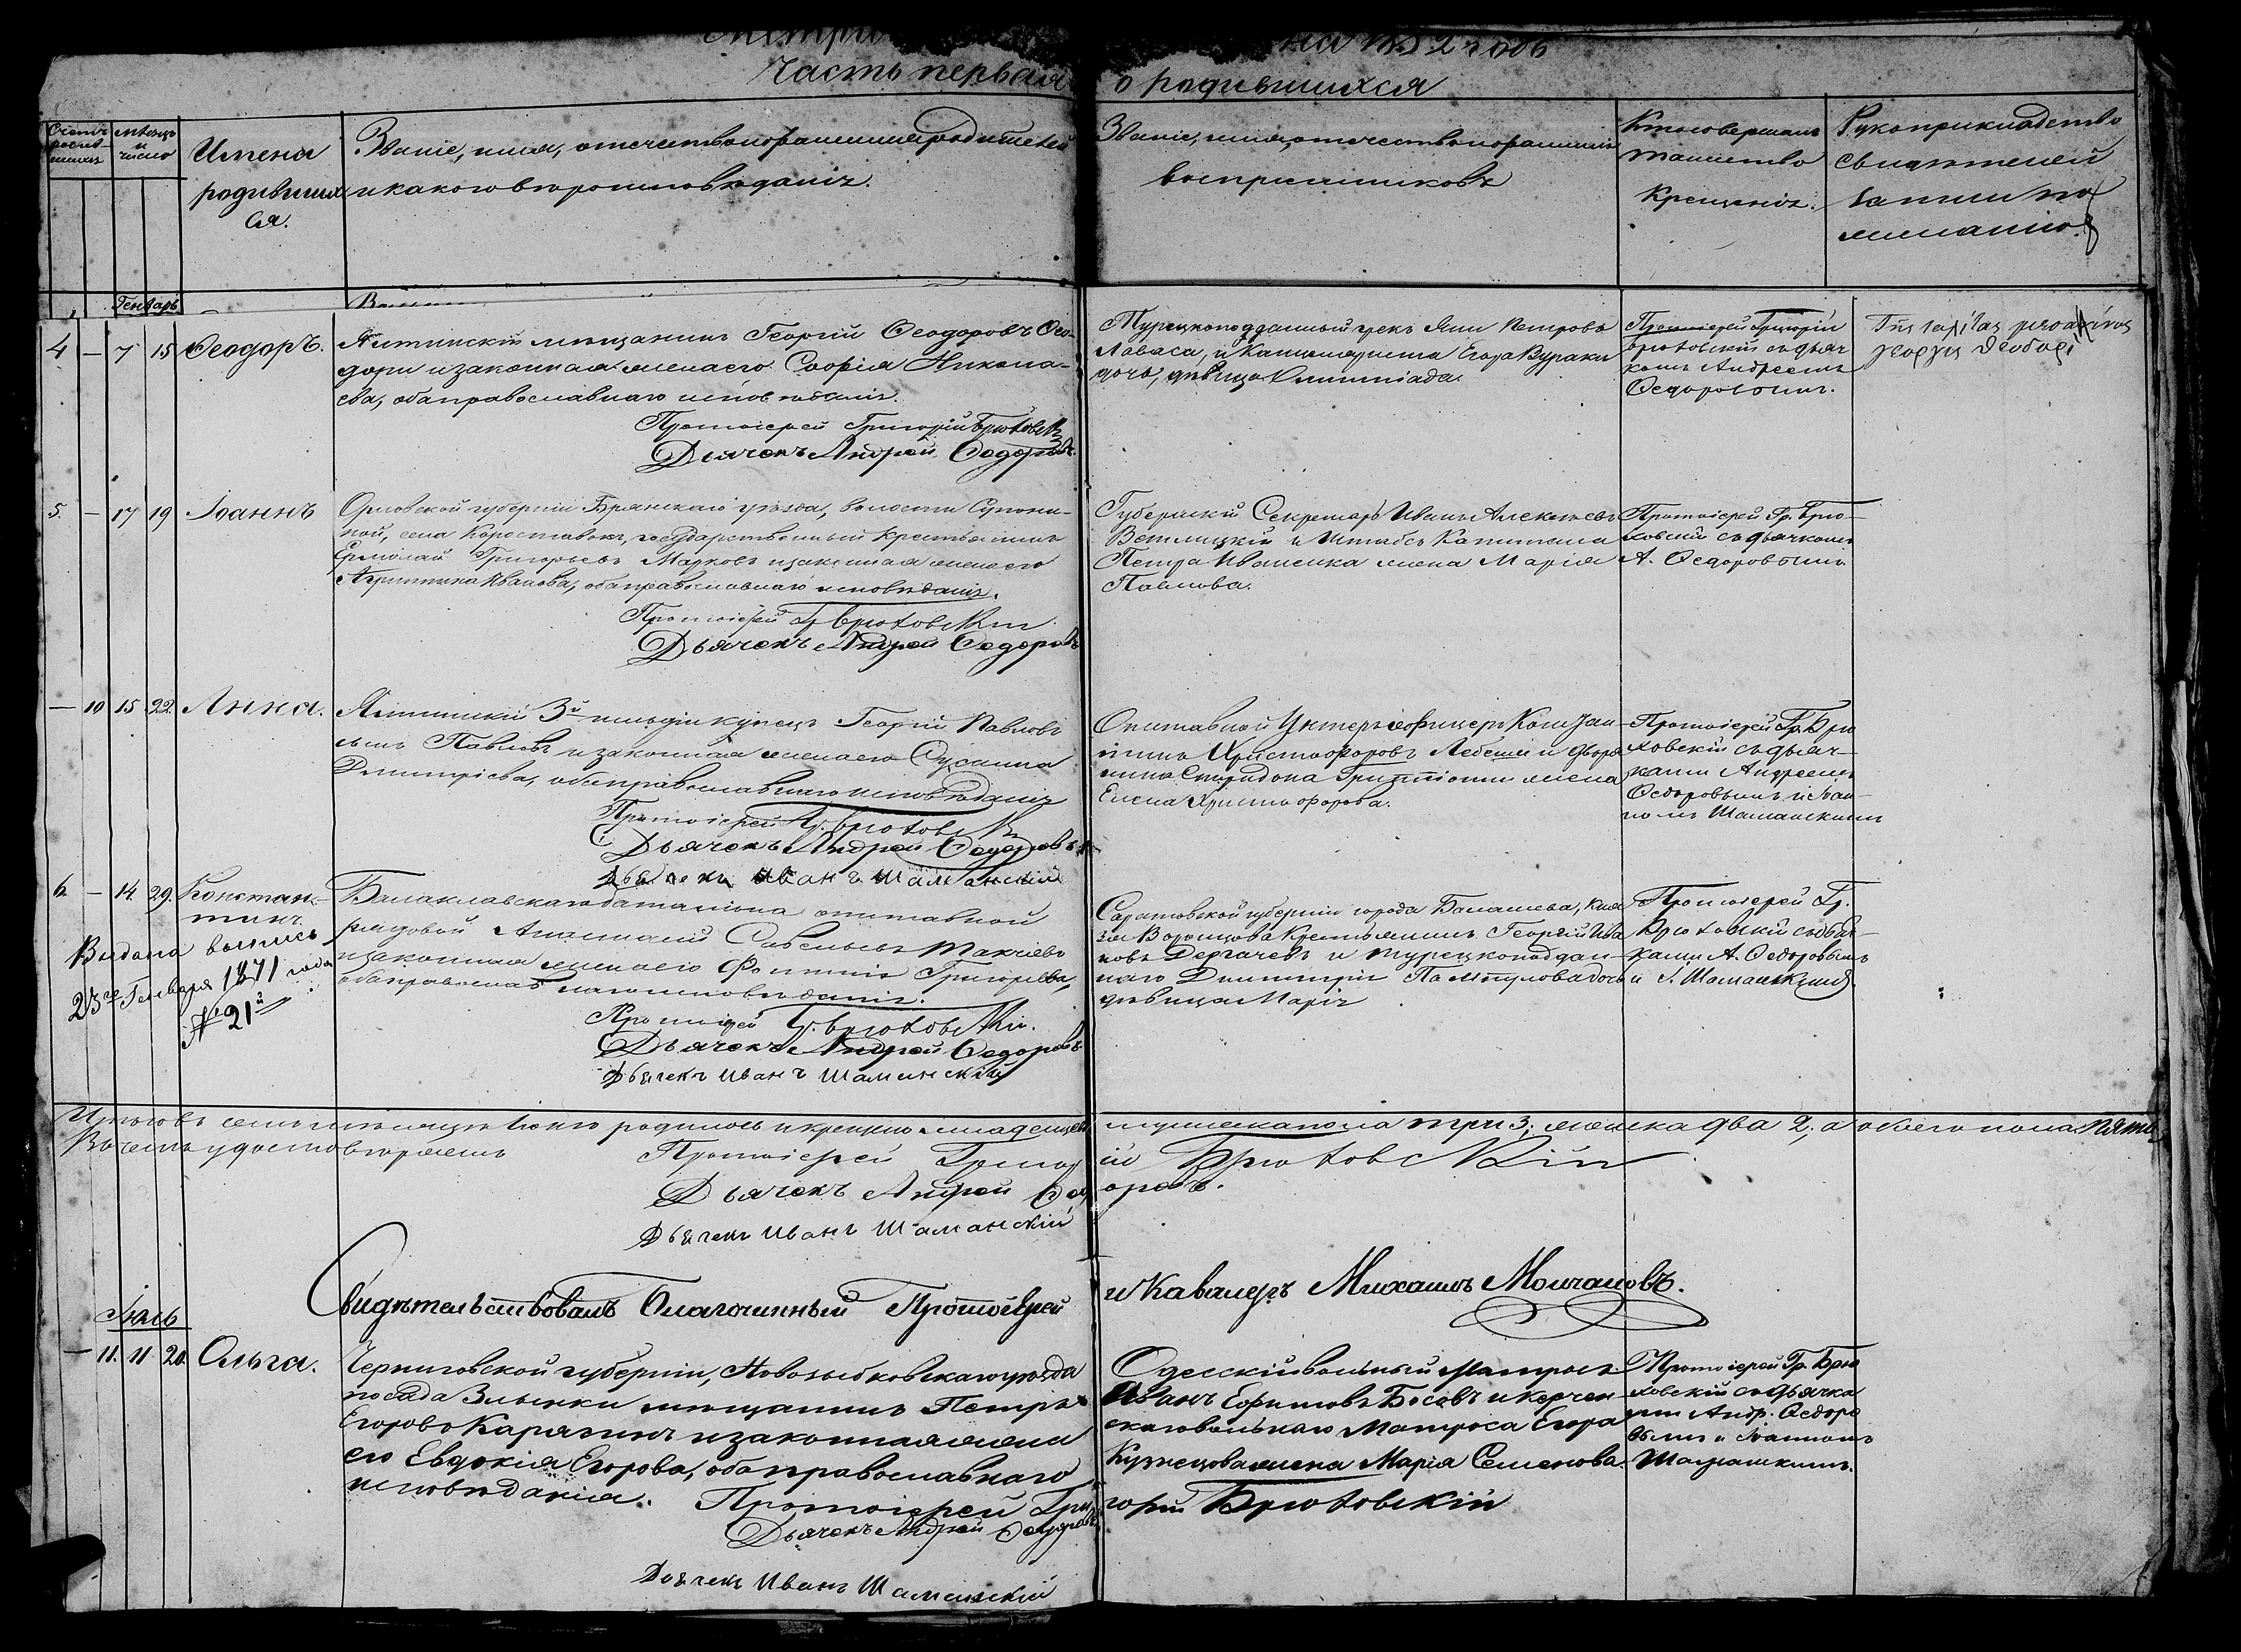 на 1852 годъ
Часть первая о родившихся
Счетъ родив-шихся
мѣсяцъ и число
Имена родившихся.
Званіе, имя, отчество и фамилія родителей
и какого вѣроисповѣданія.
Званіе, имя, отчество и фамилія
воспріемниковъ
Кто совершалъ
таинство
Крещенія.
Рукоприкладство
свидѣтелей
записи по
желанію.
Генварь
4 — 7 15 Ѳеодоръ.
Ялтинскій мѣщанинъ Георгій Ѳеодоровъ Ѳео-
дори и законная жена его Софія Никола-
ева, оба православнаго исповѣданія.
Протоіерей Григорій Брюховскій
Дьячекъ Андрей Ѳедоровъ
Турецкоподданный грекъ Яни Петровъ
Лаваса, и Канцеляриста Егора Вураки
дочь, дѣвица Олимпіада.
Протоіерей Григорій
Брюховскій съ дьяч
комъ Андреемъ
Ѳедоровымъ.
5. — 17 19 Іоаннъ
Орловской губерніи Брянскаго уѣзда, волости Супони-
ной, села государственный крестьянинъ
Ермолай Григорьевъ Марковъ и законная жена его
Агриппина Иванова, оба православнаго исповѣданія.
Протоіерей Гр. Брюховскій
Дьячекъ Андрей Ѳедоровъ
Губернскій Секретарь Иванъ Алексѣевъ
Ветлицкій и Штабсъ Капитана
Петра Иваненка жена Марія
Павлова.
Протоіерей Гр. Брю-
ховскій съ дьячкомъ
А. Ѳедоровымъ
— 10 15 22. Анна.
Ялтинскій 3й гильдіи купецъ Георгій Павловъ
сынъ Павловъ и законная жена его Сусанна
Дмитріева, оба православнаго исповѣданія
Протоіерей Гр. Брюховскій
Дьячекъ Андрей Ѳедоровъ
Дьячекъ Иванъ Шаманскій
Отставной Унтеръ-офицеръ Констан-
тинъ Христофоровъ Лебеши и дворя
нина Спиридона жена
Елена Христофорова.
Протоіерей Гр. Брю
ховскій съ дьяч-
ками Андреемъ
Ѳедоровымъ и Іоан-
номъ Шаманскимъ
6. — 14. 29. Констан-
тинъ.
Выдана выпись
23го Генваря 1871 года
№ 21й
Балаклавскаго баталіона отставной
рядовой Анастасій Савельевъ
и законная жена его Фотинія Григорьева,
оба православнаго исповѣданія.
Протоіерей Гр. Брюховскій.
Дьячекъ Андрей Ѳедоровъ
Дьячекъ Иванъ Шаманскій
Саратовской губерніи города Балашева, Кня
зя Воронцова Крестьянинъ Георгій Ива
новъ Дергачевъ и турецкоподдан-
наго Дмитрія дочь
дѣвица Марія
Протоіерей Гр.
Брюховскій съ дьяч-
ками А. Ѳедоровымъ
и І. Шаманскимъ.
Итого въ семъ мѣсяцѣ Іюнѣ родилось и крещено младенцевъ мужеска пола три 3; женска два 2; а обоего пола пять
Въ чемъ удостовѣряемъ
Протоіерей Григорій Брюховскій
Дьячекъ Андрей Ѳедоровъ.
Дьячекъ Иванъ Шаманскій
Свидѣтельствовалъ Благочинный Протоіерей и Кавалеръ Михаилъ Молчановъ.
Іюль
— 11. 11 20. Ольга.
Черниговской губерніи, Новозыбковскаго уѣзда
посада Злынки мѣщанинъ Петръ
Егоровъ Карягинъ и законная жена
его Евдокія Егорова, оба православнаго
исповѣданія.
Протоіерей Григорій Брюховскій
Дьячекъ Андрей Ѳедоровъ
Дьячекъ Иванъ Шаманскій
Одесскій вольный Матросъ
Иванъ Ефимовъ Босовъ и Керчен-
скаго вольнаго Матроса Егора
Кузнецова жена Марія Семенова.
Протоіерей Гр. Брю
ховскій съ дьячка
ми Андр. Ѳедоро
вымъ и Іоанномъ
Шаманскимъ.